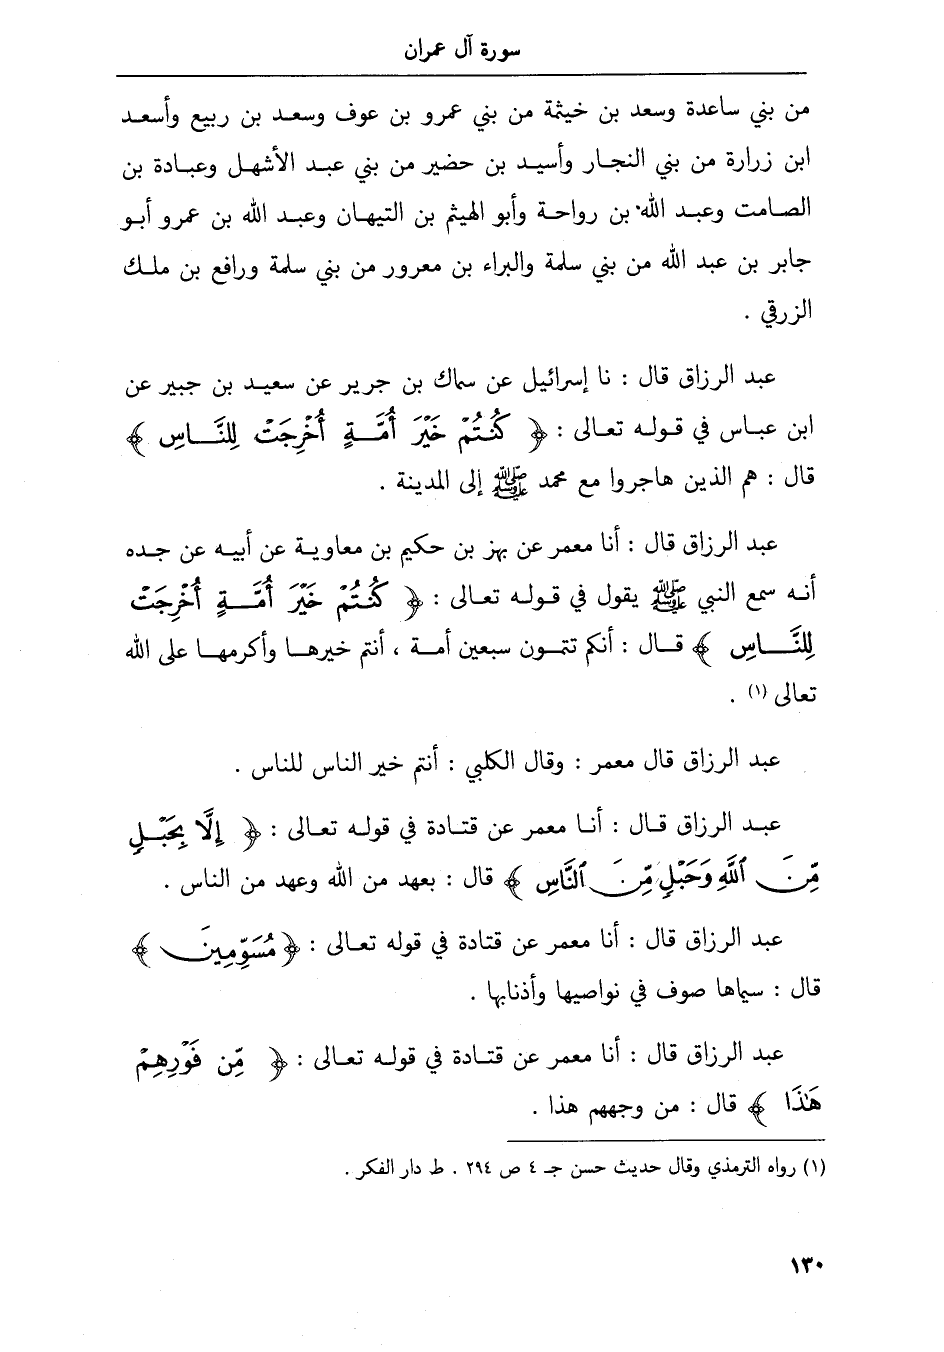 سورة آل عمران
من بني ساعدة وسعد بن خيثمة من بني عمرو بن عوف وسعد بن ربيع وأسعد
ابن زرارة من بني النجار وأسيد بن حضير من بني عبد الأشهل وعبادة بن
الصامت وعبد الله بن رواحة وأبو الهيثم بن التيهان وعبد الله بن عمرو أبو
جابر بن عبد الله من بني سلمة والبراء بن معرور من بني سلمة ورافع بن ملك
الزرقي .
عبد الرزاق قال : نا إسرائيل عن سماك بن جرير عن سعيد بن جبير عن
ابن عباس في قوله تعالى : ﴿ كُنتُمْ خَيْرَ أُمَّةٍ أُخْرِجَتْ لِلنَّاسِ ﴾
قال : هم الذين هاجروا مع محمد ﷺ إلى المدينة .
عبد الرزاق قال : أنا معمر عن بهز بن حكيم بن معاوية عن أبيه عن جده
أنه سمع النبي ﷺ يقول في قوله تعالى : ﴿ كُنتُمْ خَيْرَ أُمَّةٍ أُخْرِجَتْ
لِلنَّاسِ ﴾ قال : أنكم تتمون سبعين أمة ، أنتم خيرها وأكرمها على الله
تعالى (١) .
عبد الرزاق قال معمر : وقال الكلبي : أنتم خير الناس للناس .
عبد الرزاق قال : أنا معمر عن قتادة في قوله تعالى : ﴿ إِلَّا بِحَبْلٍ
مِّنَ ٱللَّهِ وَحَبْلٍ مِّنَ ٱلنَّاسِ ﴾ قال : بعهد من الله وعهد من الناس .
عبد الرزاق قال : أنا معمر عن قتادة في قوله تعالى : ﴿ مُسَوِّمِينَ ﴾
قال : سيماها صوف في نواصيها وأذنابها .
عبد الرزاق قال : أنا معمر عن قتادة في قوله تعالى : ﴿ مِّن فَوْرِهِمْ
هَٰذَا ﴾ قال : من وجههم هذا .
(١) رواه الترمذي وقال حديث حسن جـ ٤ ص ٢٩٤ . ط دار الفكر .
١٣٠